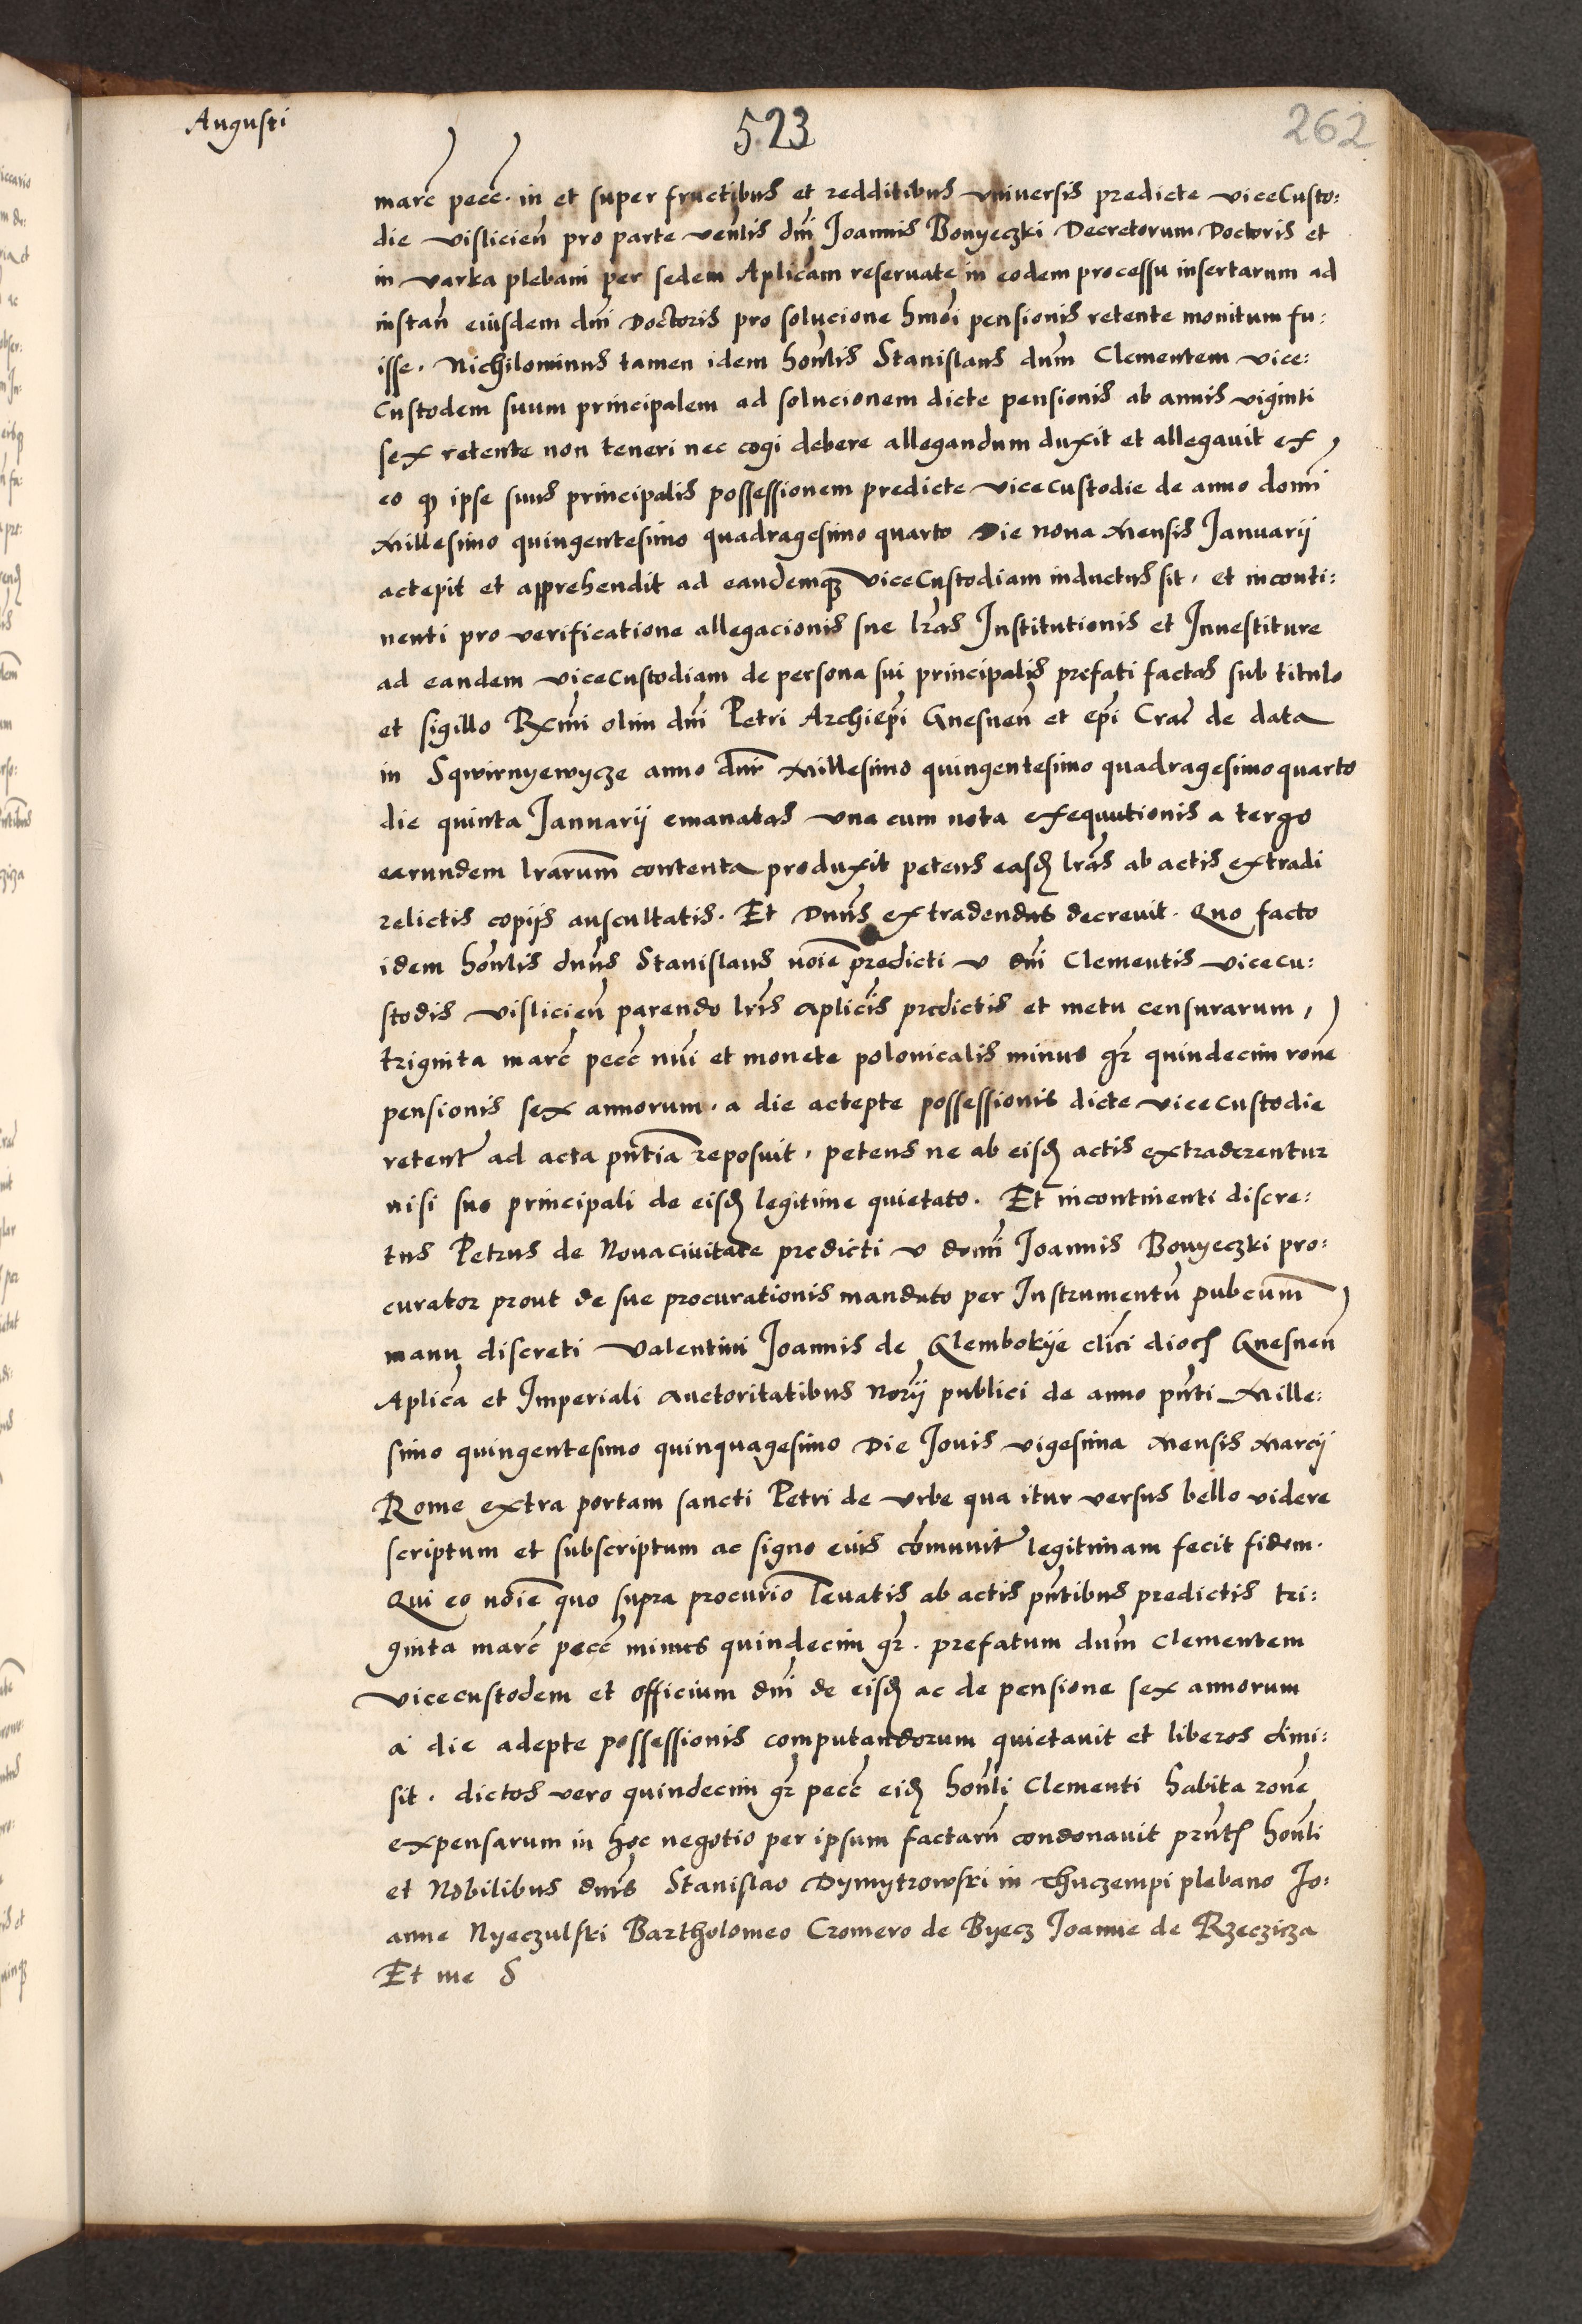 Augusti
523
262
marc̄ pecc̄. in et super fructibus et redditibus vniversis predicte viceCusto:
die vislicień pro parte veńlis dńi Joannis Bonyeczki Decretorum Doctoris et
in varka plebani per sedem Aplicam reseruate in eodem processu insertarum ad
instań eiusdem dńi Doctoris pro solucione hmōi pensionis retente monitum fu:
isse. Nichilominus tamen idem hońlis Stanislaus dńm Clementem vice:
Custodem suum principalem ad solucionem dicte pensionis ab annis viginti
sex retente non teneri nec cogi debere allegandum duxit et allegauit ex
eo ꝙ ipse suus principalis possessionem predicte vicecustodie de anno domī
Millesimo quingentesimo quadragesimo quarto Die nona Mensis Januarij
actepit et apprehendit ad eandemqꝫ viceCustodiam inductus sit, et inconti:
nenti pro verificatione allegacionis sue lras Institutionis et Inuestiture
ad eandem viceCustodiam de persona sui principalis prefati factas sub titulo
et sigillo Rx̄mi olim dńi Petri Archiepī Gnesneń et epī Crac̄ de data
in Sqwirnyewycze anno dnī Millesimo quingentesimo quadragesimo quarto
die quinta Januarij emanatas vna cum nota exequutionis a tergo
earundem lrarum contenta produxit petens easd lras ab actis extradi
relictis copijs auscultatis. Et Dnńs extradendas decreuit. Quo facto
idem hońlis dnńs Stanislaus noīe predicti v dńi Clementis vicecu:
stodis vislicień parendo lris aplicīs predictis et metu censurarum,
triginta marc̄ pecc̄ nūi et monete polonicalis minus gr̄ quindecim rońe
pensionis sex annorum. a die actepte possessionis dicte viceCustodie
retent̄ ad acta pn̄tia reposuit, petens ne ab eisd actis extraderentur
nisi suo principali de eisd legitime quietato. Et incontinenti discre:
tus Petrus de Nouaciuitate predicti v domī Joannis Bonyeczki pro:
curator prout de sue procurationis mandato per Instrumentū pubcum
manu discreti Valentini Joannis de Glembokije clici dioc̄ Gnesneń
Aplica et Imperiali auctoritatibus Norij publici de anno pn̄ti Mille:
simo quingentesimo quinquagesimo Die Jouis vigesima Mensis Marcij
Rome extra portam sancti Petri de vrbe qua itur versus bello videre
scriptum et subscriptum ac signo eius cōmunit̄ legitimam fecit fidem.
Qui eo noīe quo supra procurio leuatis ab actis pn̄tibus predictis tri:
ginta marc̄ pecc̄ minus quindecim gr̄. prefatum dńm Clementem
vicecustodem et officium dńi de eisd ac de pensione sex annorum
a die adepte possessionis computandorum quietauit et liberos dimi:
sit. dictos vero quindecim gr̄ pecc̄ eid hońli Clementi habita rońe
expensarum in hoc negotio per ipsum factarū condonauit prn̄t̄ hońli
et Nobilibus dnīs Stanislao Dymytrowski in Thuczempi plebano Jo:
anne Nyeczulski Bartholomeo Cromero de Byecz Joanne de Rzeczicza
Et me S